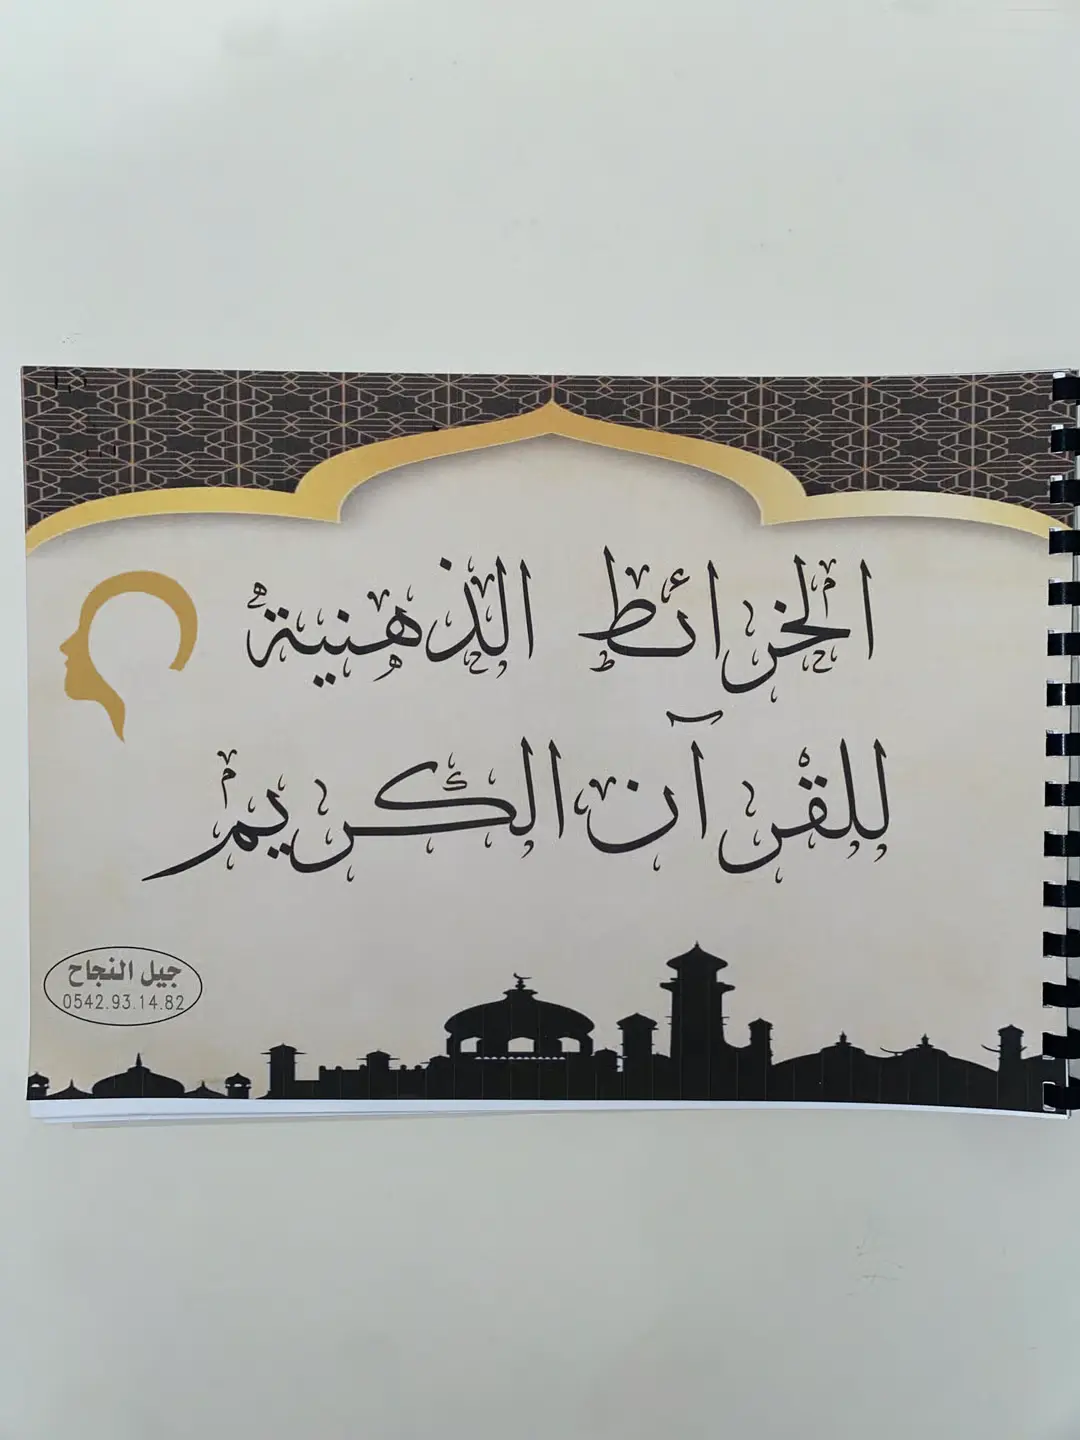 الخرائط الذهنية
للقرآن الكريم
جيل النجاح
0542.93.14.82